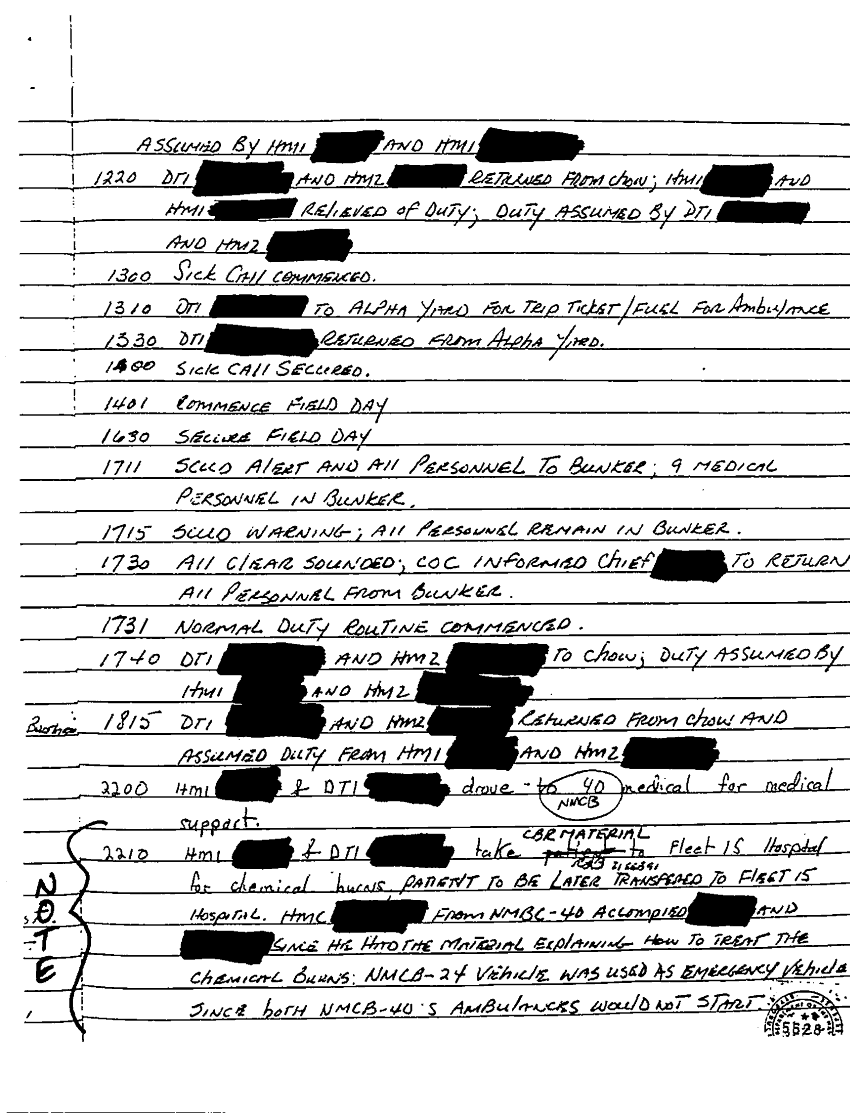 ASSUMED BY HM1 AND HM1
1220 DT1 AND HM2 RETURNED FROM CHOW; HM1 AND
HM1 RELIEVED OF DUTY; DUTY ASSUMED BY DT1
AND HM2
1300 SICK CALL COMMENCED.
1310 DT1 TO ALPHA YARD FOR TRIP TICKET/FUEL FOR AMBULANCE
1330 DT1 RETURNED FROM ALPHA YARD.
1400 SICK CALL SECURED.
1401 COMMENCE FIELD DAY
1630 SECURE FIELD DAY
1711 SCUD ALERT AND ALL PERSONNEL TO BUNKER; 9 MEDICAL
PERSONNEL IN BUNKER.
1715 SCUD WARNING; ALL PERSONNEL REMAIN IN BUNKER.
1730 ALL CLEAR SOUNDED; COC INFORMED CHIEF TO RETURN
ALL PERSONNEL FROM BUNKER.
1731 NORMAL DUTY ROUTINE COMMENCED.
1740 DT1 AND HM2 TO CHOW; DUTY ASSUMED BY
HM1 AND HM2
1815 DT1 AND HM2 RETURNED FROM CHOW AND
ASSUMED DUTY FROM HM1 AND HM2
2200 HM1 & DT1 drove to 40 medical for medical
NMCB
support.
CBR MATERIAL
2210 HM1 & DT1 take to Fleet 15 Hospital
for chemical burns, PATIENT TO BE LATER TRANSFERED TO FLEET 15
HOSPITAL. HMC FROM NMBC-40 ACCOMPIED AND
SINCE HE HAD THE MATERIAL EXPLAINING HOW TO TREAT THE
CHEMICAL BURNS: NMCB-24 VEHICLE WAS USED AS EMERGENCY VEHICLE
SINCE BOTH NMCB-40'S AMBULANCES WOULD NOT START.
NOTE
5528